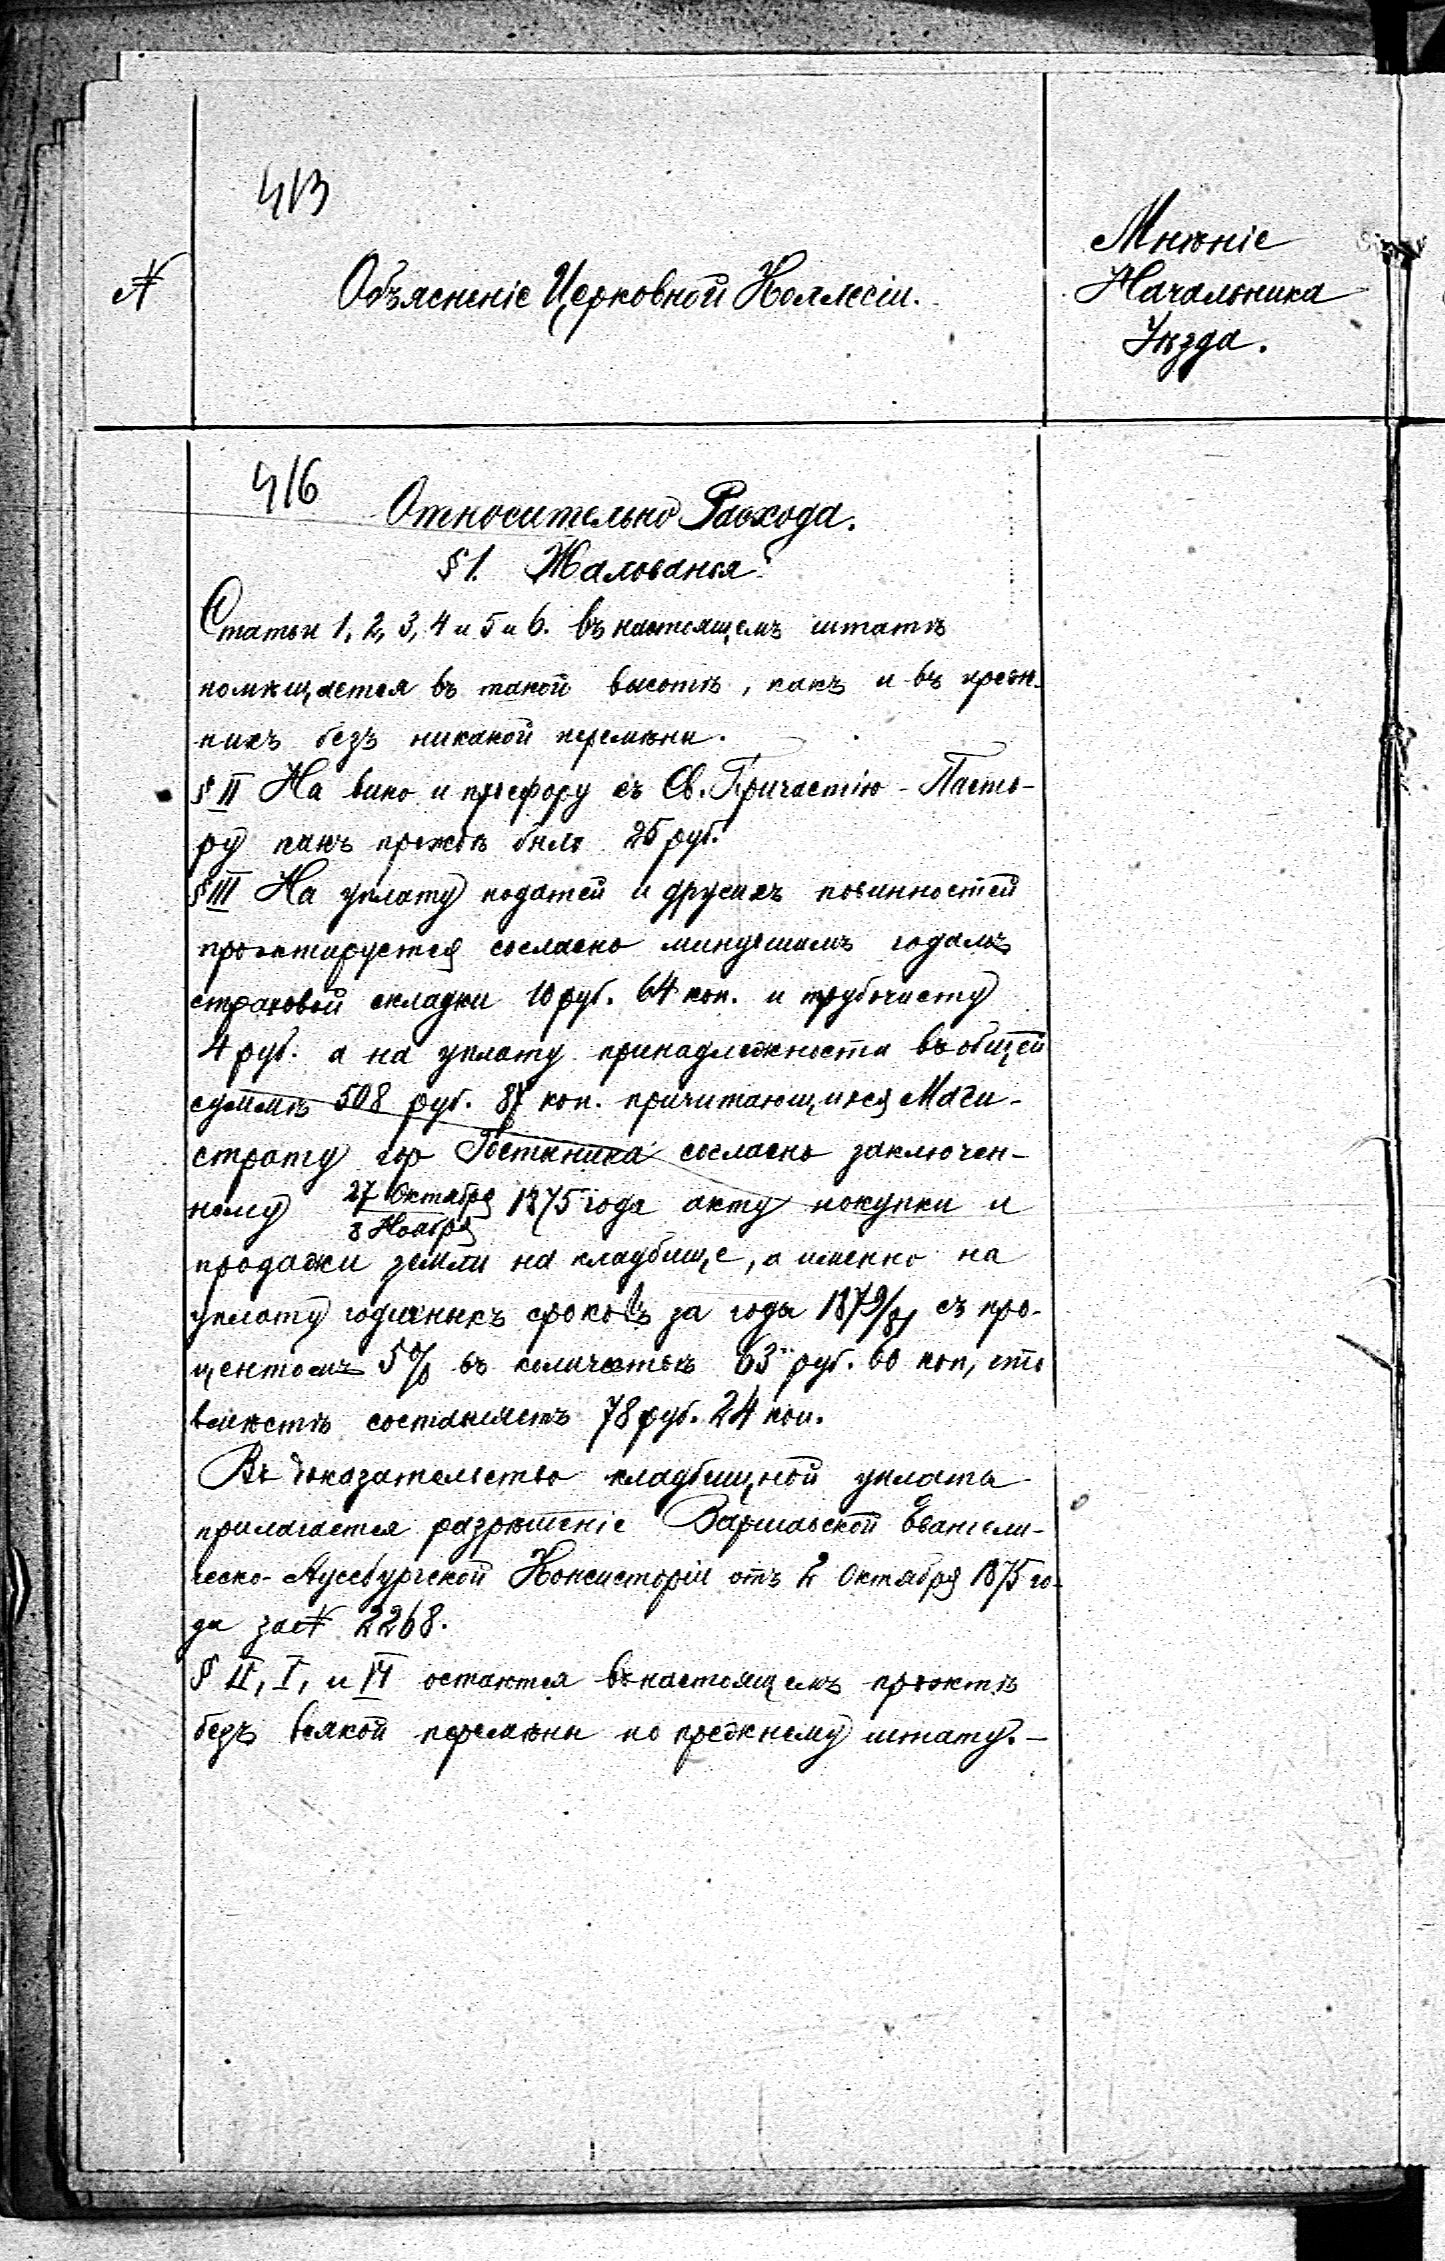 413
№
Объясненіе Церковной Коллегіи.
Мнѣніе
Начальника
Уѣзда.
416
Относительно Расхода.
§ 1. Жалованья
Статьи 1, 2, 3, 4 и 5 и 6. въ настоящемъ штатѣ
помѣщается въ такой высотѣ, какъ и въ преж-
нихъ безъ никакой перемѣны.
§ II На вино и просфору къ Св. Причастію - Пасто-
ру какъ прежде было 25 руб.
§ III На уплату податей и другихъ повинностей
проэктируется согласно минувшимъ годамъ
страховой складки 10 руб. 64 коп. и трубочисту
4 руб. а на уплату принадлежности въ общей
суммѣ 508 руб. 87 коп. причитающуюся Маги-
страту гор Гостынина согласно заключен-
ному 27 Октября / 8 Ноября 1875 года акту покупки и
продажи земли на кладбище, а именно на
уплату годичныхъ сроковъ за годы 1879/81 съ про-
центомъ 5% въ количествѣ 63 руб. 60 коп, что
вмѣстѣ составляетъ 78 руб. 24 коп.
Въ доказательство кладбищной уплаты
прилагается разрѣшеніе Варшавской Евангели-
ческо-Аугсбургской Консисторіи отъ 2 Октября 1875 го-
да за № 2268.
§ IV, V, и VI остаются въ настоящемъ проэктѣ
безъ всякой перемѣны по прежнему штату.—